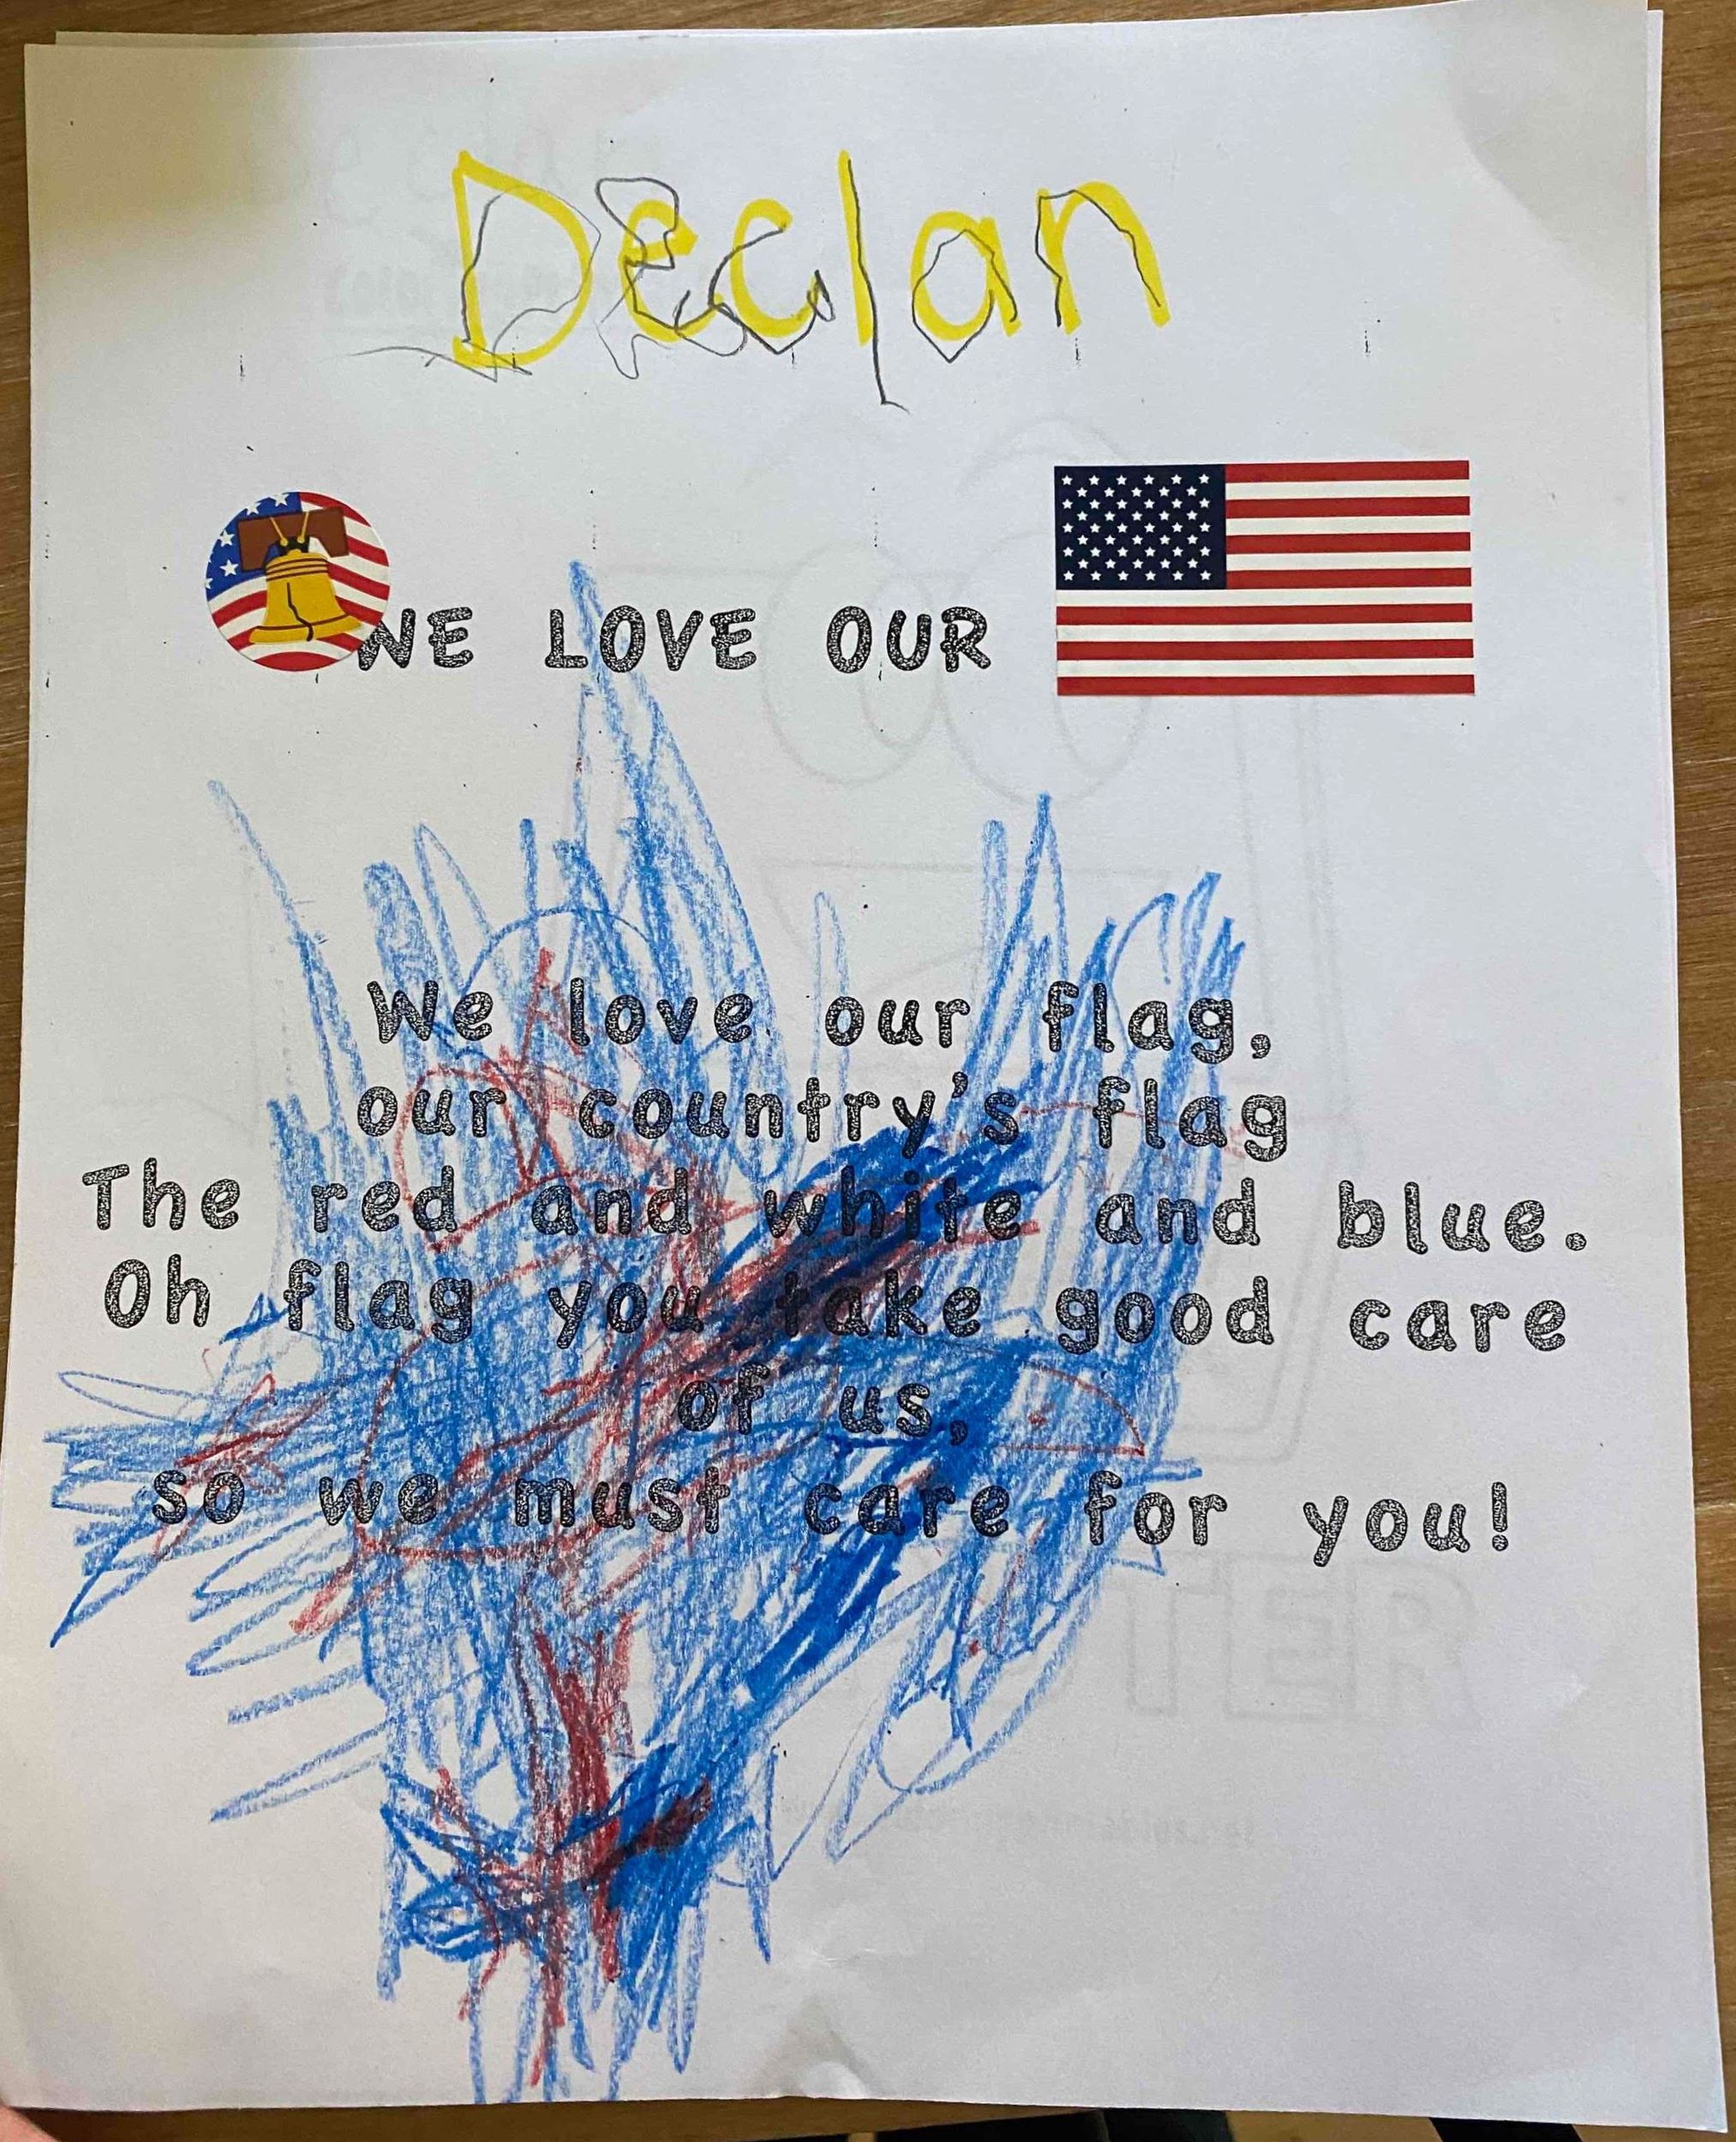 Declan
WE LOVE OUR
We love our flag,
our country's flag
The red and white and blue.
Oh flag you take good care
of us,
so we must care for you!